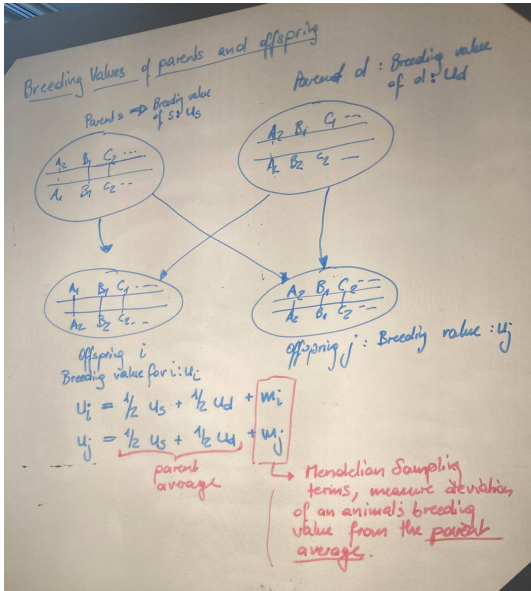 Breeding Values of parents and offspring
Parent s ⇒ Breeding value
of s: us
Parent d : Breeding value
of d: ud
A2 B1 C2 ...
A1 B1 C2 ...
A2 B1 C1 ---
A1 B2 C2 ---
A1 B1 C1 ---
A2 B2 C2 ---
A2 B1 C2 ---
A2 B1 C2 ---
Offspring i
Breeding value for i: ui
Offspring j : Breeding value : uj
ui = 1/2 us + 1/2 ud + mi
uj = 1/2 us + 1/2 ud + mj
parent
average
Mendelian Sampling
terms, measure deviation
of an animals breeding
value from the parent
average.